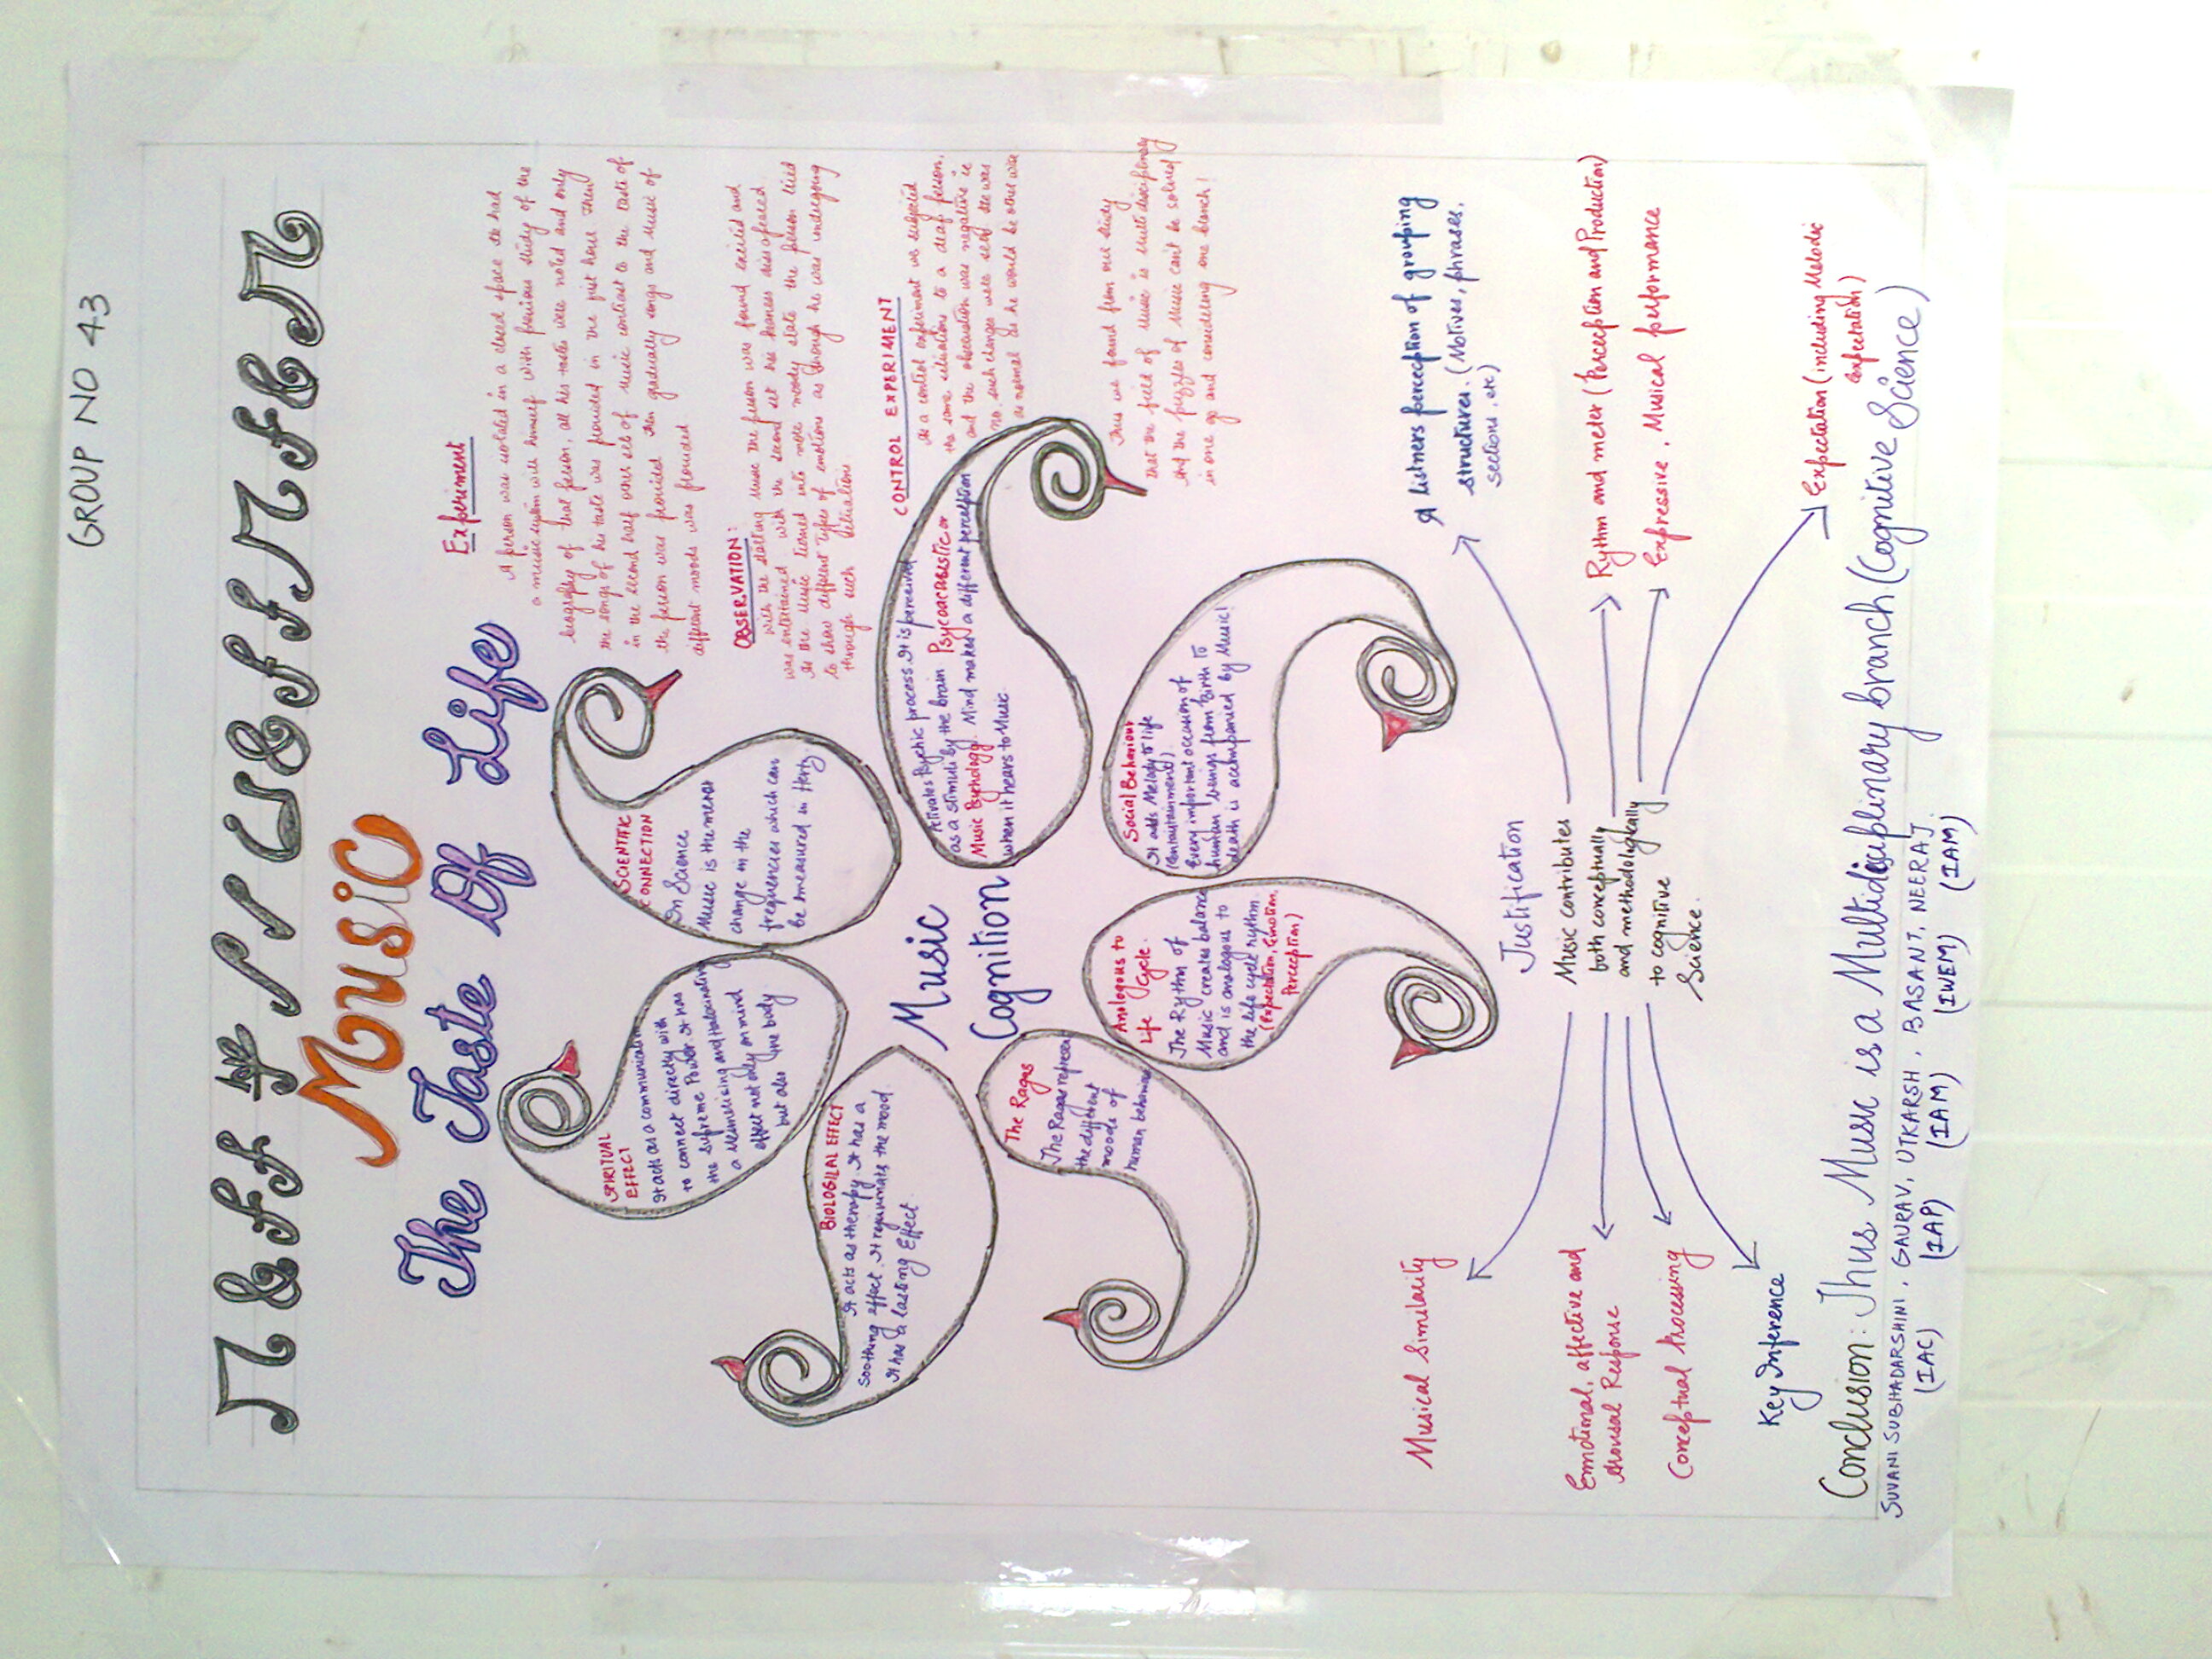 GROUP NO 43
Music
The Taste Of Life
Experiment
A person was isolated in a closed space he had
a music system with himself with previous study of the
biography of that person, all his tastes were noted and only
the songs of his taste was provided in the first hour then
in the second half other set of music contrast to the taste of
the person was provided then gradually songs and music of
different moods was provided.
OBSERVATION:
With the starting music the person was found excited and
was entertained with the second set his keeness disappeared.
As the music turned into more moody state the person tried
to show different types of emotions as though he was undergoing
through such situations.
CONTROL EXPERIMENT
As a control experiment we subjected
the same situations to a deaf person.
and the observation was negative ie
no. such changes were seen he was
as normal as he would be other wise
Thus we found from our study
that the field of Music is multi disciplinary
and the puzzles of Music can't be solved
in one go and considering one branch!
SCIENTIFIC
CONNECTION
In Science
Music is the mere
change in the
frequencies which can
be measured in Hertz.
SPIRITUAL
EFFECT
It acts as a communication
to connect directly with
the Supreme Power. It has
a Mesmerising and Halocinating
effect not only on mind
but also the body
BIOLOGICAL EFFECT
It acts as therapy. It has a
Soothing effect. It rejuvinates the mood.
It has a lasting Effect.
Music
Cognition
Activates Psychic process. It is perceived
as a stimuli by the brain Psycoacaustic or
Music Psychology. Mind makes a different perception
when it hears to Music.
Social Behaviour
It adds Melody to life
(Entaintainment).
Every important occassion of
human beings from birth to
death is accompanied by Music!
Analogous to
Life Cycle.
The Rythm of
Music creates balance
and is analogous to
the life cycle rythm.
(Expectation, Emotion,
Perception)
The Ragas
The Ragas represent
the different
moods of
human behaviour
Justification
Music contributes
both conceptually
and methodologically
to cognitive
Science.
A listners perception of grouping
structures. (Motives, phrases,
sections, etc)
Rythm and meter (Perception and Production)
Expressive, Musical performance
Expectation (including Melodic
expectation)
Musical Similarity
Emotional, affective and
Arousal Response
Conceptual Processing
Key Inference
Conclusion: Thus Music is a Multidisciplinary branch (Cognitive Science)
SUVANI SUBHADARSHINI, GAURAV, UTKARSH, BASANT, NEERAJ.
(IAC) (IAP) (IAM) (IWEM) (IAM)